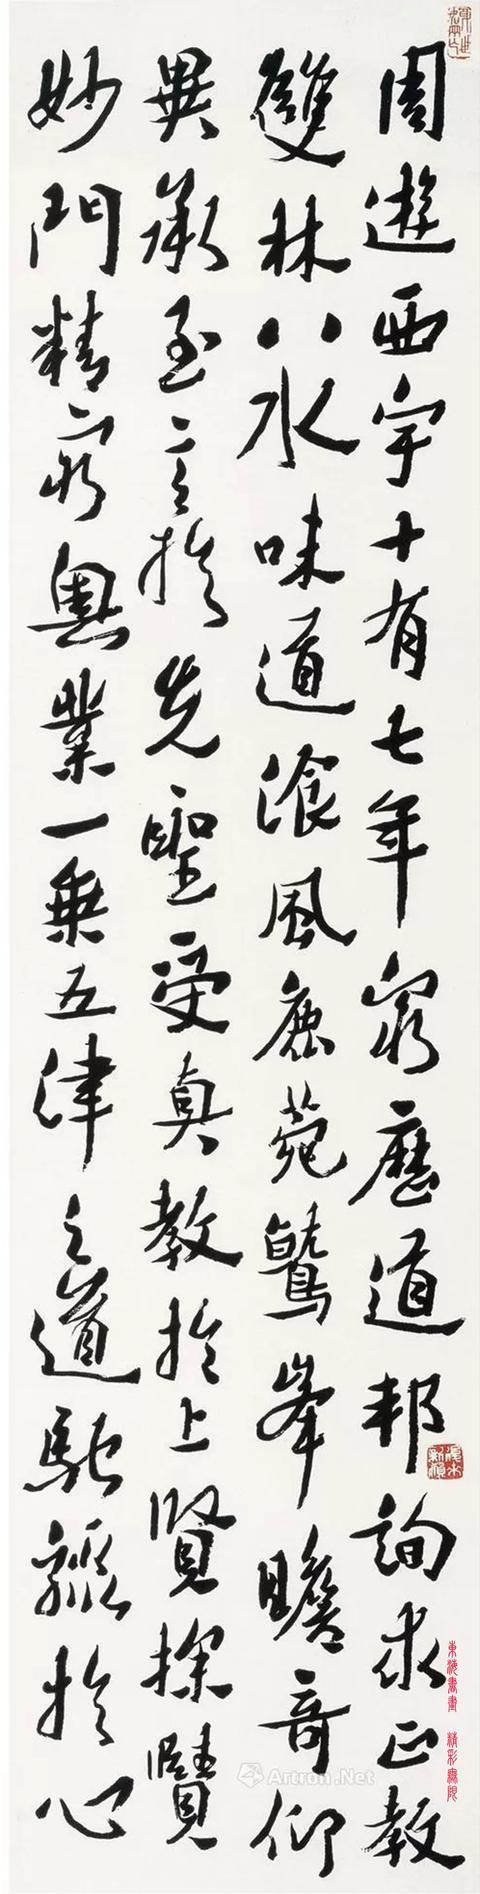 周遊西宇十有七年窮歷道邦詢求正教
雙林八水味道湌風鹿菀鷲峯瞻奇仰
異承至言於先聖受真教於上賢探賾
妙門精窮奧業一乘五律之道馳驟於心
東海書畫 精彩無限
Artron.Net